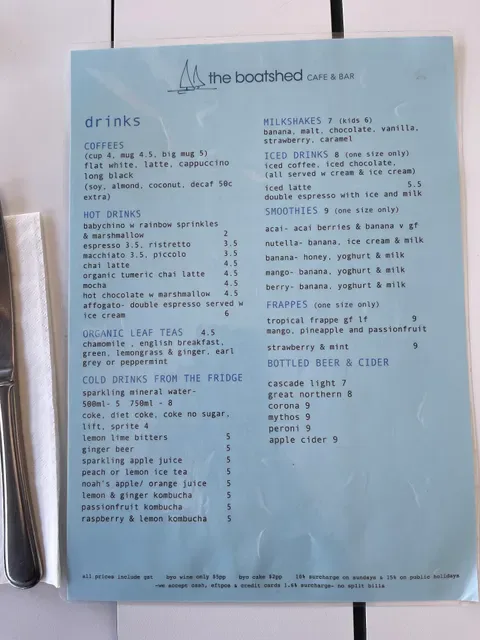 the boatshed CAFE & BAR
drinks
COFFEES
(cup 4, mug 4.5, big mug 5)
flat white, latte, cappuccino
long black
(soy, almond, coconut, decaf 50c
extra)
HOT DRINKS
babychino w rainbow sprinkles
& marshmallow 2
espresso 3.5, ristretto 3.5
macchiato 3.5, piccolo 3.5
chai latte 4.5
organic tumeric chai latte 4.5
mocha 4.5
hot chocolate w marshmallow 4.5
affogato- double espresso served w
ice cream 6
ORGANIC LEAF TEAS 4.5
chamomile , english breakfast,
green, lemongrass & ginger, earl
grey or peppermint
COLD DRINKS FROM THE FRIDGE
sparkling mineral water-
500ml- 5 750ml - 8
coke, diet coke, coke no sugar,
lift, sprite 4
lemon lime bitters 5
ginger beer 5
sparkling apple juice 5
peach or lemon ice tea 5
noah's apple/ orange juice 5
lemon & ginger kombucha 5
passionfruit kombucha 5
raspberry & lemon kombucha 5
MILKSHAKES 7 (kids 6)
banana, malt, chocolate, vanilla,
strawberry, caramel
ICED DRINKS 8 (one size only)
iced coffee, iced chocolate,
(all served w cream & ice cream)
iced latte 5.5
double espresso with ice and milk
SMOOTHIES 9 (one size only)
acai- acai berries & banana v gf
nutella- banana, ice cream & milk
banana- honey, yoghurt & milk
mango- banana, yoghurt & milk
berry- banana, yoghurt & milk
FRAPPES (one size only)
tropical frappe gf lf 9
mango, pineapple and passionfruit
strawberry & mint 9
BOTTLED BEER & CIDER
cascade light 7
great northern 8
corona 9
mythos 9
peroni 9
apple cider 9
all prices include gst byo wine only $5pp byo cake $2pp 10% surcharge on sundays & 15% on public holidays
-we accept cash, eftpos & credit cards 1.6% surcharge- no split bills